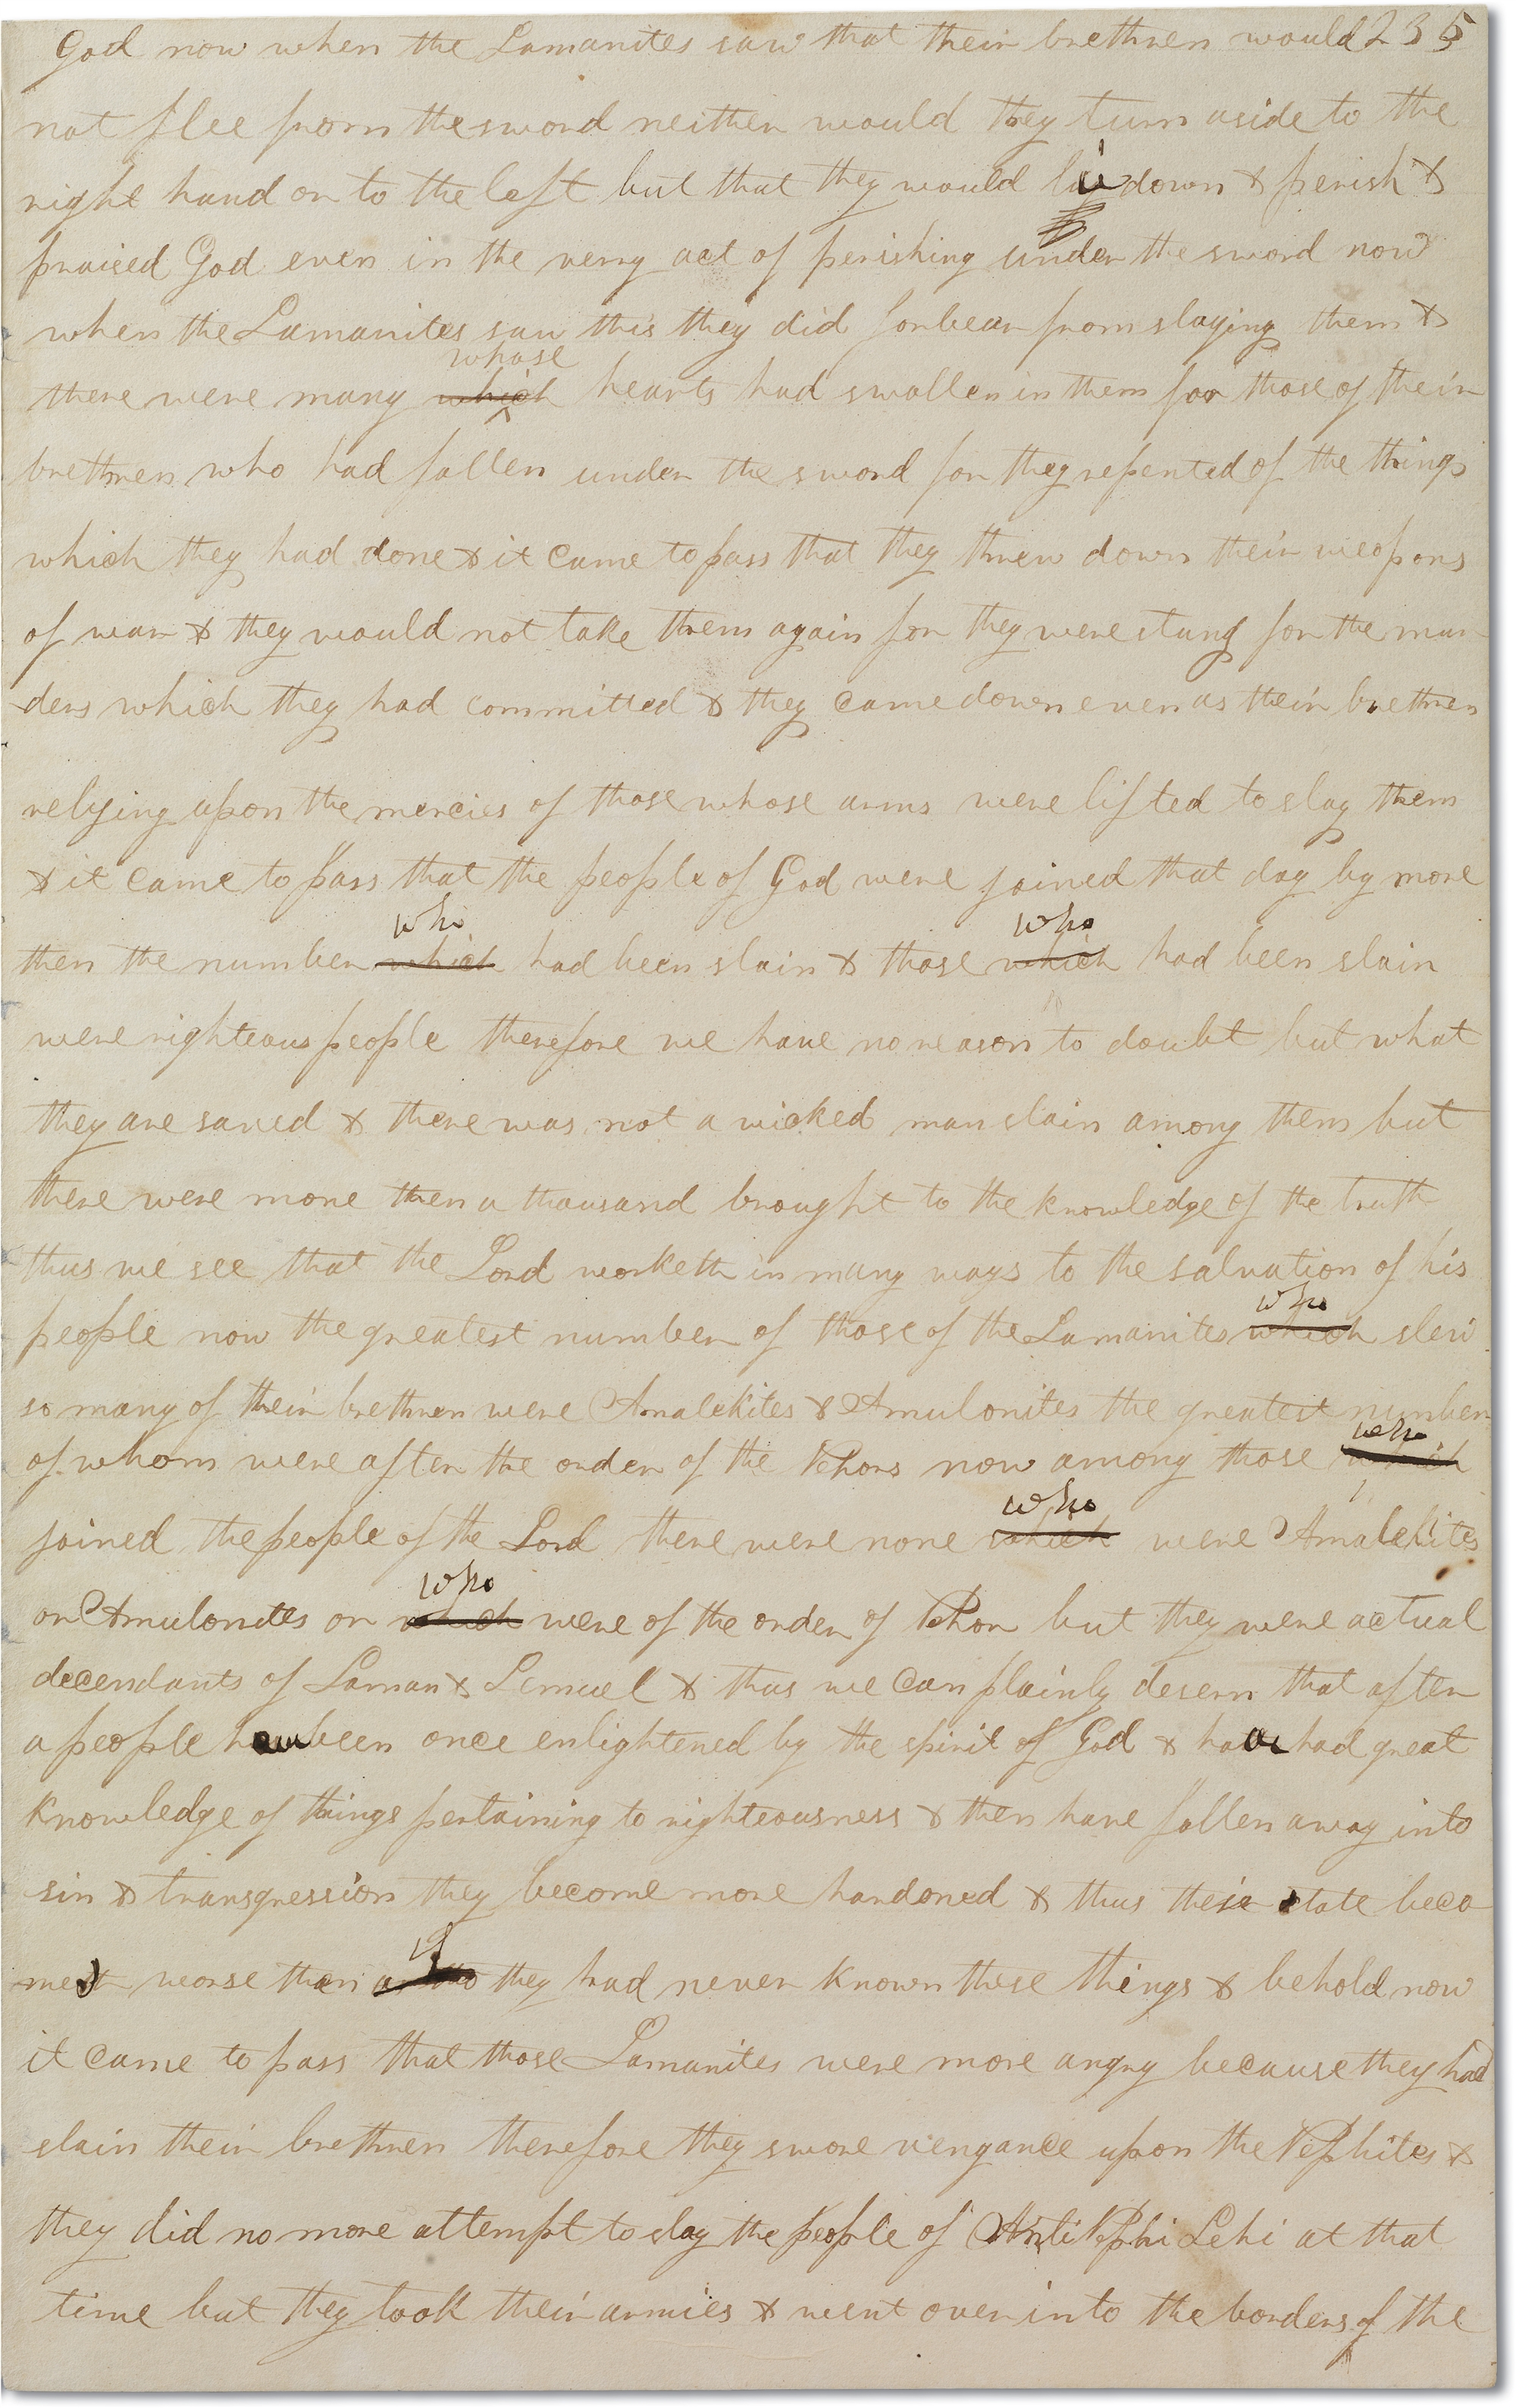 God now when the Lamanites saw that their brethren would 235
not flee from the sword neither would they turn aside to the
right hand or to the left but that they would lie down & perish &
praised God even in the very act of perishing under the sword now
when the Lamanites saw this they did forbear from slaying them &
whose
there were many which hearts had swollen in them for those of their
brethren who had fallen under the sword for they repented of the things
which they had done & it came to pass that they threw down their weopons
of war & they would not take them again for they were stung for the mur
ders which they had committed & they came down even as their brethren
relying upon the mercies of those whose arms were lifted to slay them
& it came to pass that the people of God were joined that day by more
who who
then the number which had been slain & those which had been slain
were righteous people therefore we have no reason to doubt but what
they are saved & there was not a wicked man slain among them but
there were more then a thousand brought to the knowledge of the truth
thus we see that the Lord worketh in many ways to the salvation of his
who
people now the greatest number of those of the Lamanites which slew
so many of their brethren were Amalekites & Amulonites the greatest number
who
of whom were after the order of the Nehors now among those which
who
joined the people of the Lord there were none which were Amalekites
who
or Amulonites or which were of the order of Nehor but they were actual
decendants of Laman & Lemuel & thus we can plainly desern that after
a people have been once enlightened by the spirit of God & have had great
knowledge of things pertaining to righteousness & then have fallen away into
sin & transgression they become more hardoned & thus their state beco
if
mes worse than they had never known these things & behold now
it came to pass that those Lamanites were more angry because they had
slain their brethren therefore they swore vengance upon the Nephites &
they did no more attempt to slay the people of Anti Nephi Lehi at that
time but they took their armies & went over into the borders of the